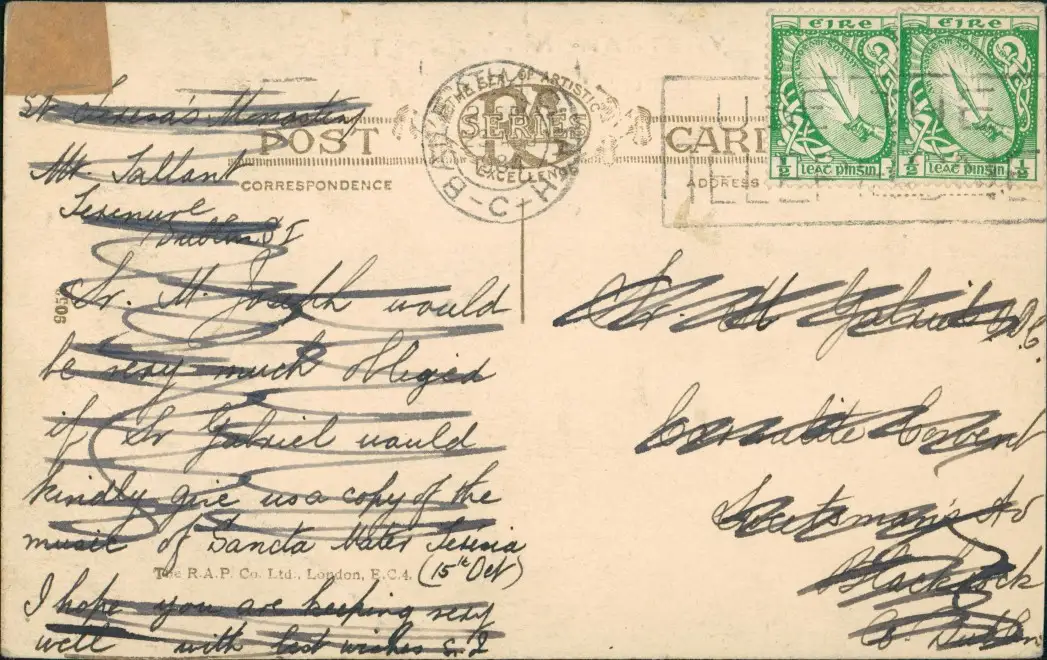 ÉIRE ÉIRE
THE SEAL OF ARTISTIC
SERIES
EXCELLENCE
POST CARD
CORRESPONDENCE
ADDRESS
½ LEAT PINSIN ½
½ LEAT PINSIN ½
BAILE
C-H
St Teresa's Monastery
Mt. Tallant
Terenure
Dublin
Sr. M. Joseph would
be very much Obliged
if Sr Gabriel would
kindly give us a copy of the
music of Sancta Mater Teresia
(15th Oct)
I hope you are keeping very
well with best wishes
The R.A.P. Co. Ltd., London, E.C.4.
Sr. M Gabriel
Carmelite Convent
Sweetman's Av
Blackrock
Co. Dublin